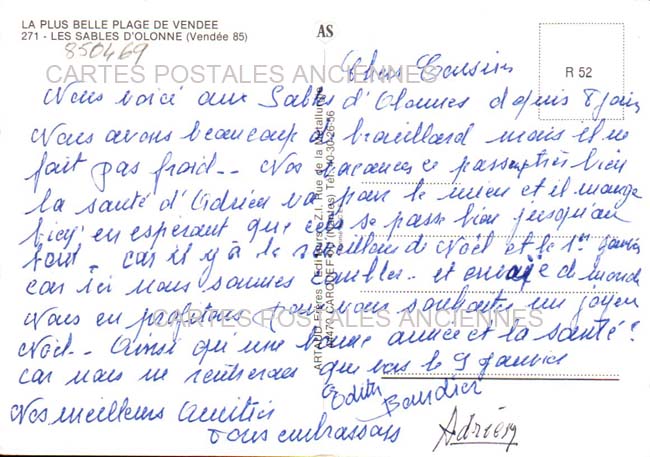 LA PLUS BELLE PLAGE DE VENDEE
271 - LES SABLES D'OLONNE (Vendée 85)
850469
AS
R 52
CARTES POSTALES ANCIENNES
Chers Cousins
Nous voici aux Sables d'Olonnes depuis 8 jours
Nous avons beaucoup de brouillard mais il ne
fait pas froid.. Nos vacances ce passent très bien
la santé d'Adrien va pour le mieux et il mange
bien, en espérant que cela se passe bien jusqu'au
bout car il y a le reveillon de Noël et le 1er Janvier
car ici nous sommes comblés.. et de monde
Nous en profitons pour vous souhaiter un joyeux
Noël.. Ainsi qu'une bonne année et la santé!
car nous ne rentrerons que vers le 9 Janvier
Edith Adrien
Nos meilleurs Amitiés
Vous embrassons
ARTAUD Frères Editeurs, Z.I. Rue de la Métallurgie
44470 CARQUEFOU (Nantes) Tél.
CARTES POSTALES ANCIENNES